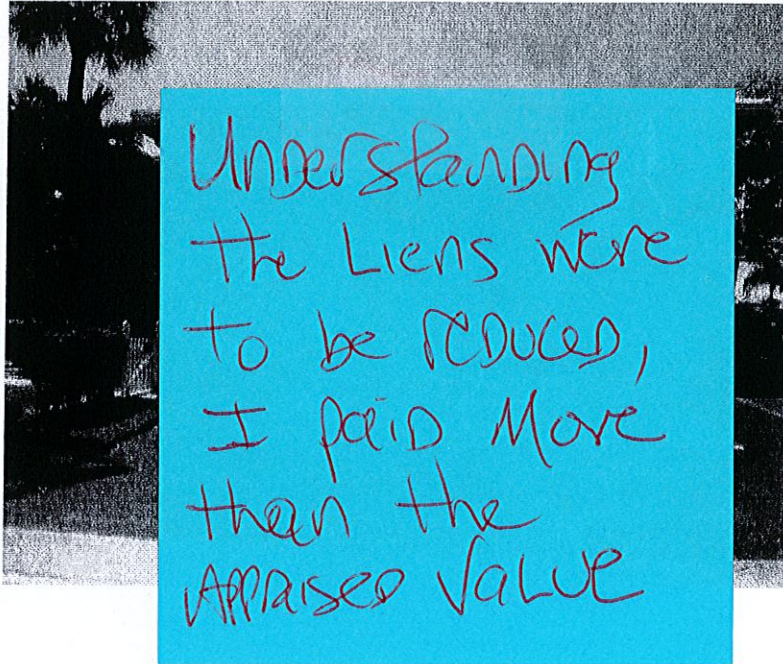 Understanding
the Liens were
to be reduced,
I paid More
than the
Appraised Value